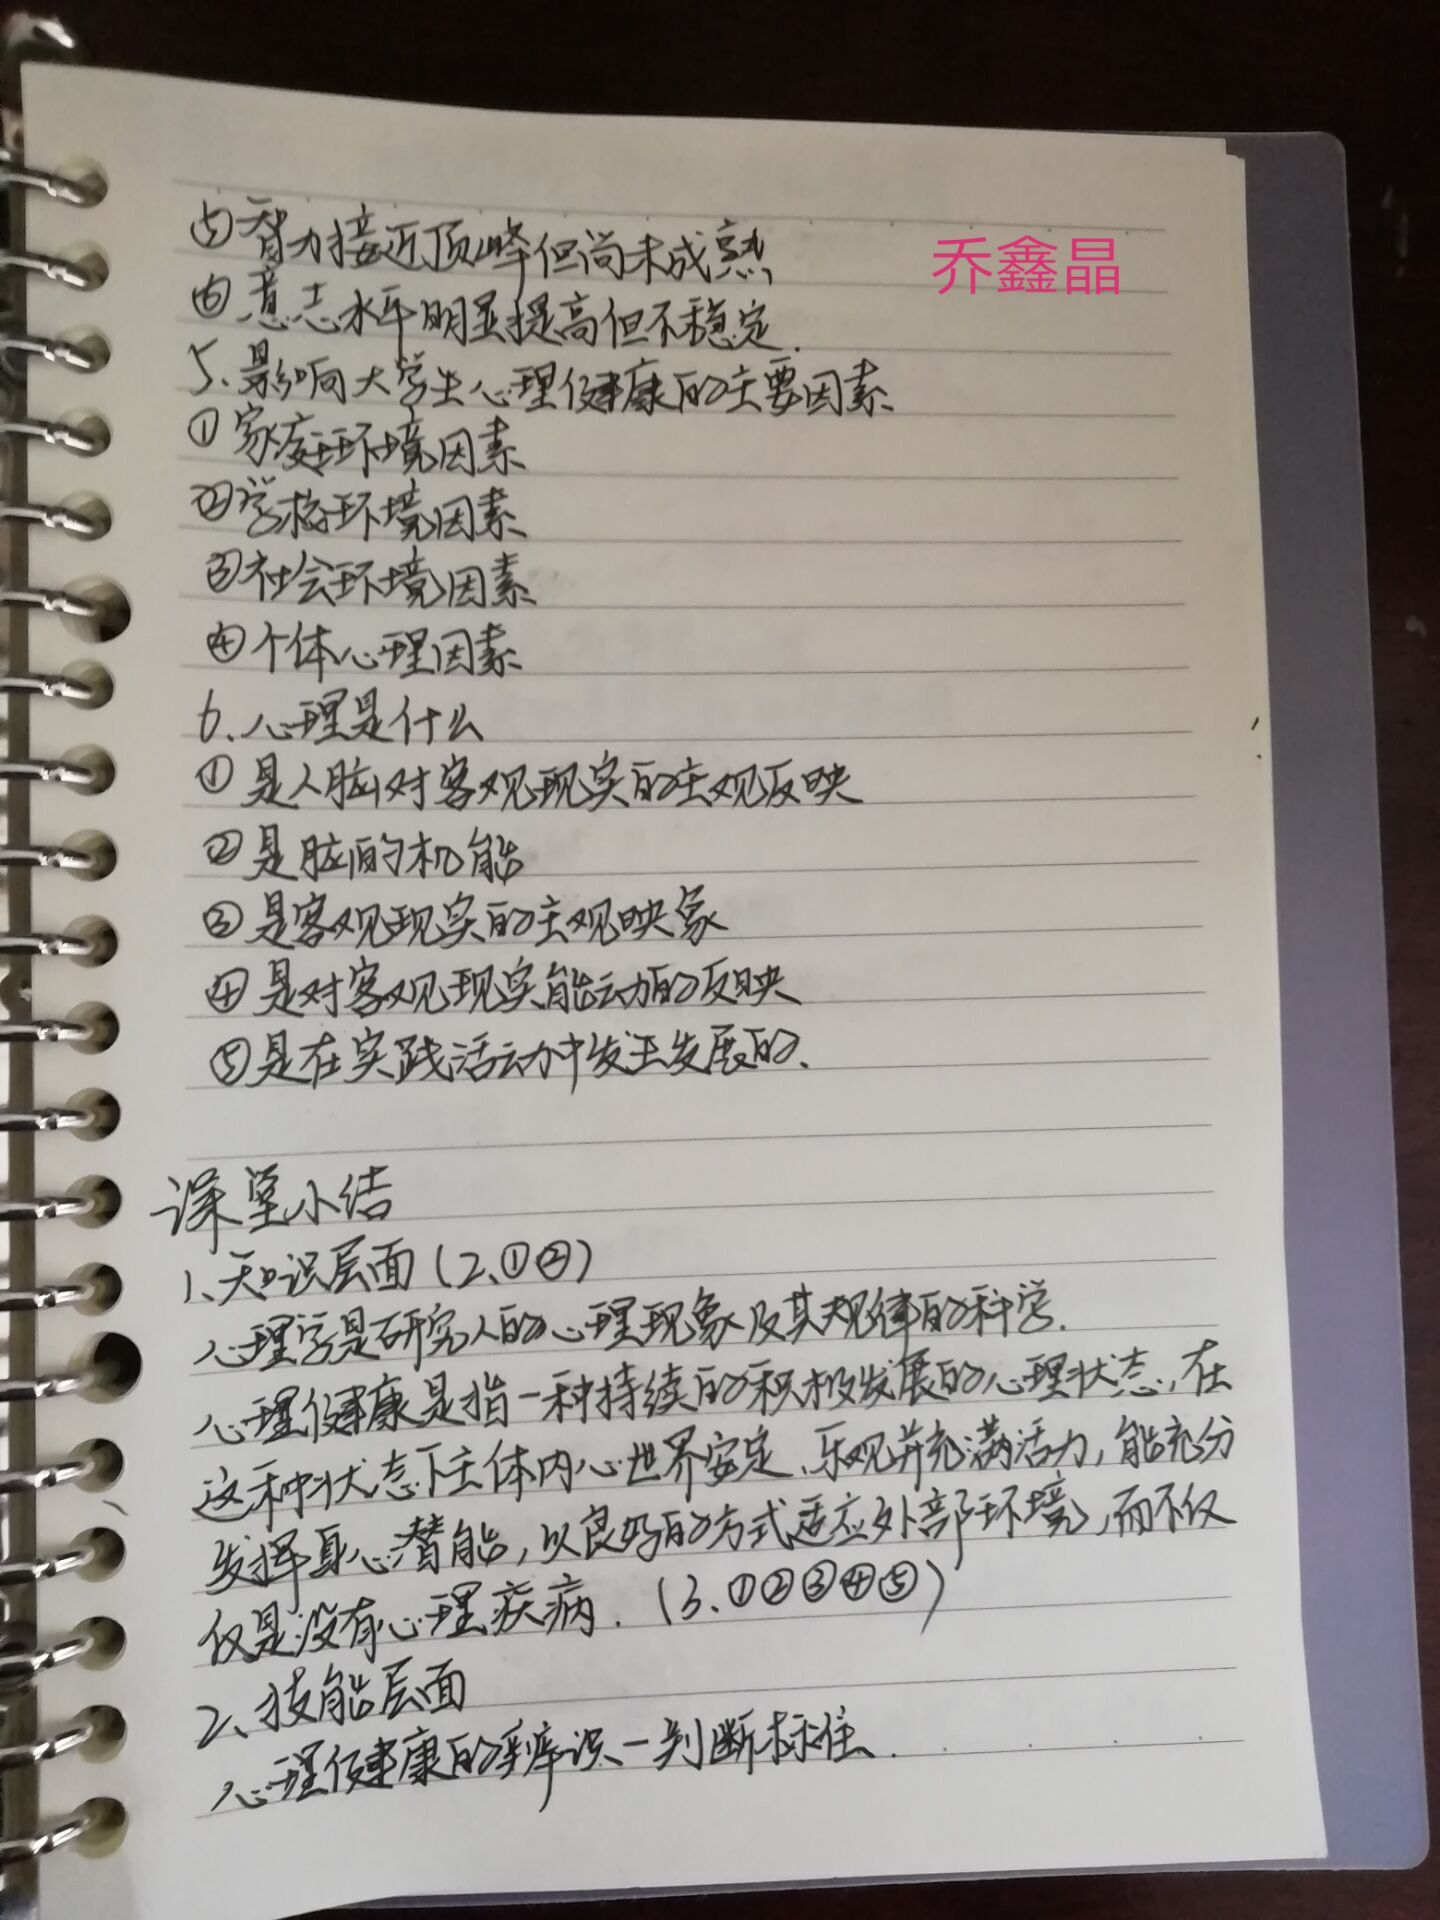 ⑤智力接近顶峰但尚未成熟
乔鑫晶
⑥意志水平明显提高但不稳定.
5、影响大学生心理健康的主要因素
①家庭环境因素
②学校环境因素
③社会环境因素
④个体心理因素
6、心理是什么
①是人脑对客观现实的主观反映
②是脑的机能
③是客观现实的主观映象
④是对客观现实能动的反映
⑤是在实践活动中发生发展的、
课堂小结
1、知识层面(2、①②)
心理学是研究人的心理现象及其规律的科学.
心理健康是指一种持续的积极发展的心理状态,在
这种状态下主体内心世界安定、乐观并充满活力,能充分
发挥身心潜能,以良好的方式适应外部环境,而不仅
仅是没有心理疾病.(3、①②③④⑤)
2、技能层面
心理健康的辨识—判断标准.